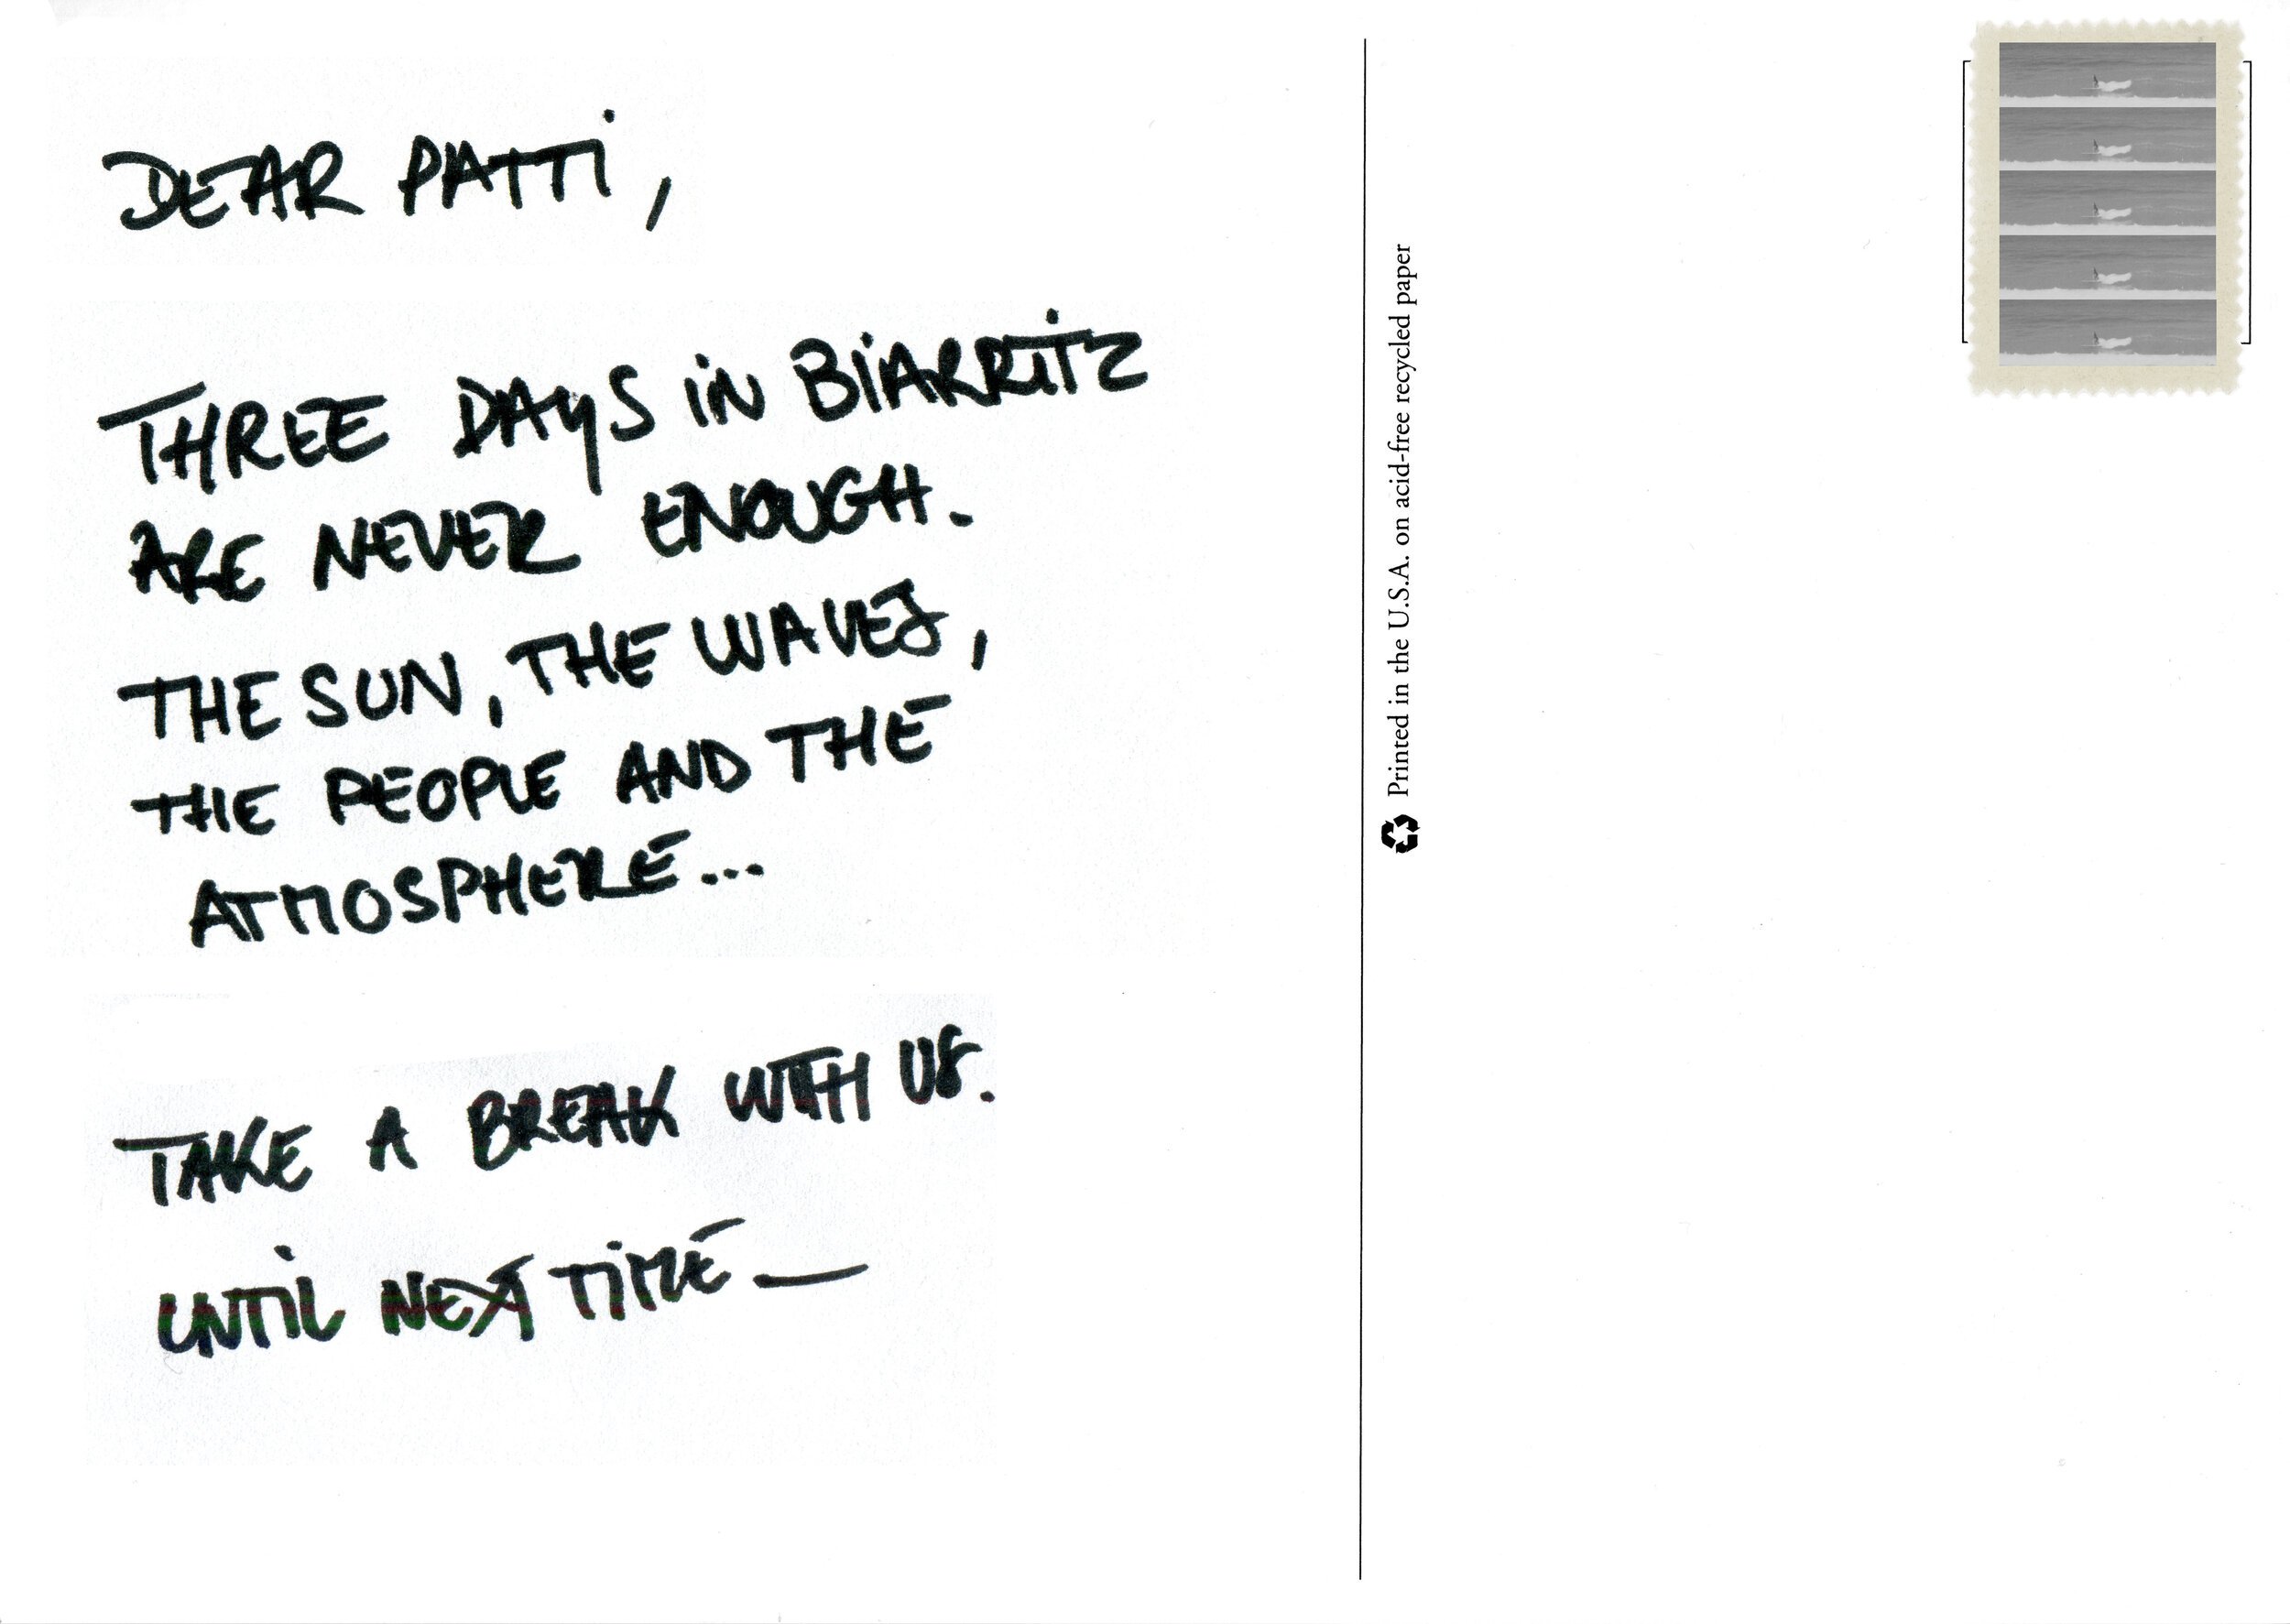 DEAR PATTI,
THREE DAYS IN BIARRITZ
ARE NEVER ENOUGH.
THE SUN, THE WAVES,
THE PEOPLE AND THE
ATMOSPHERE...
TAKE A BREAK WITH US.
UNTIL NEXT TIME —
Printed in the U.S.A. on acid-free recycled paper